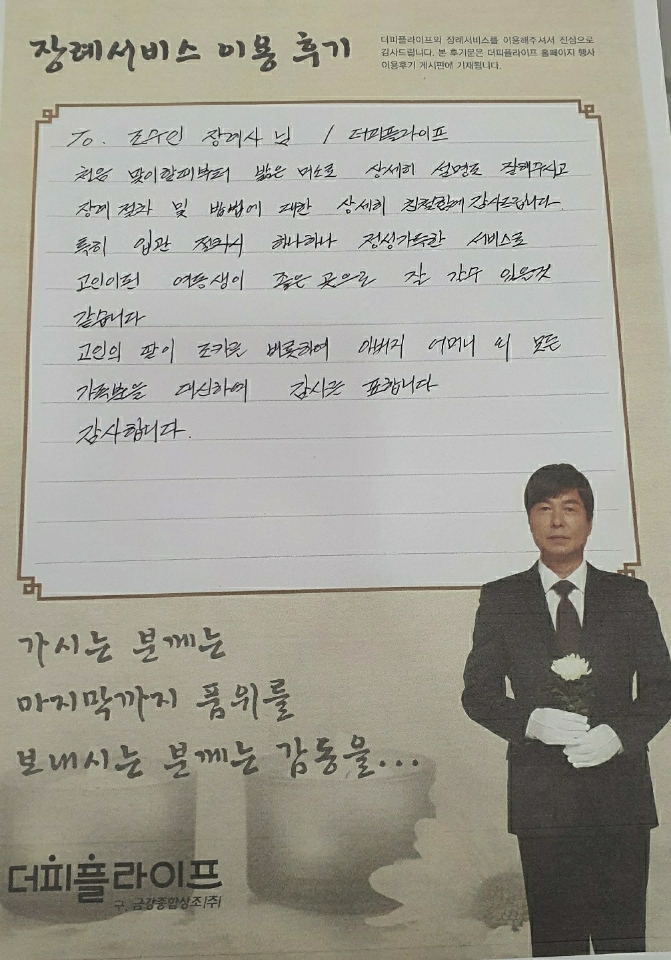 장례서비스 이용 후기
더피플라이프의 장례서비스를 이용해주셔서 진심으로
감사드립니다. 본 후기문은 더피플라이프 홈페이지 행사
이용후기 게시판에 기재됩니다.
To. 조수인 장례사 님 / 더피플라이프
처음 맞이할때부터 밝은 미소로 상세히 설명도 잘해주시고
장례 절차 및 방법에 대한 상세히 친절함에 감사드립니다.
특히 입관 절차시 하나하나 정성가득한 서비스로
고인이된 여동생이 좋은 곳으로 잘 갈수 있을것
같습니다
고인의 딸이 조카를 비롯하여 아버지 어머니 외 모든
가족분을 대신하여 감사를 표합니다
감사합니다.
가시는 분께는
마지막까지 품위를
보내시는 분께는 감동을...
더피플라이프
구. 금강종합상조(주)